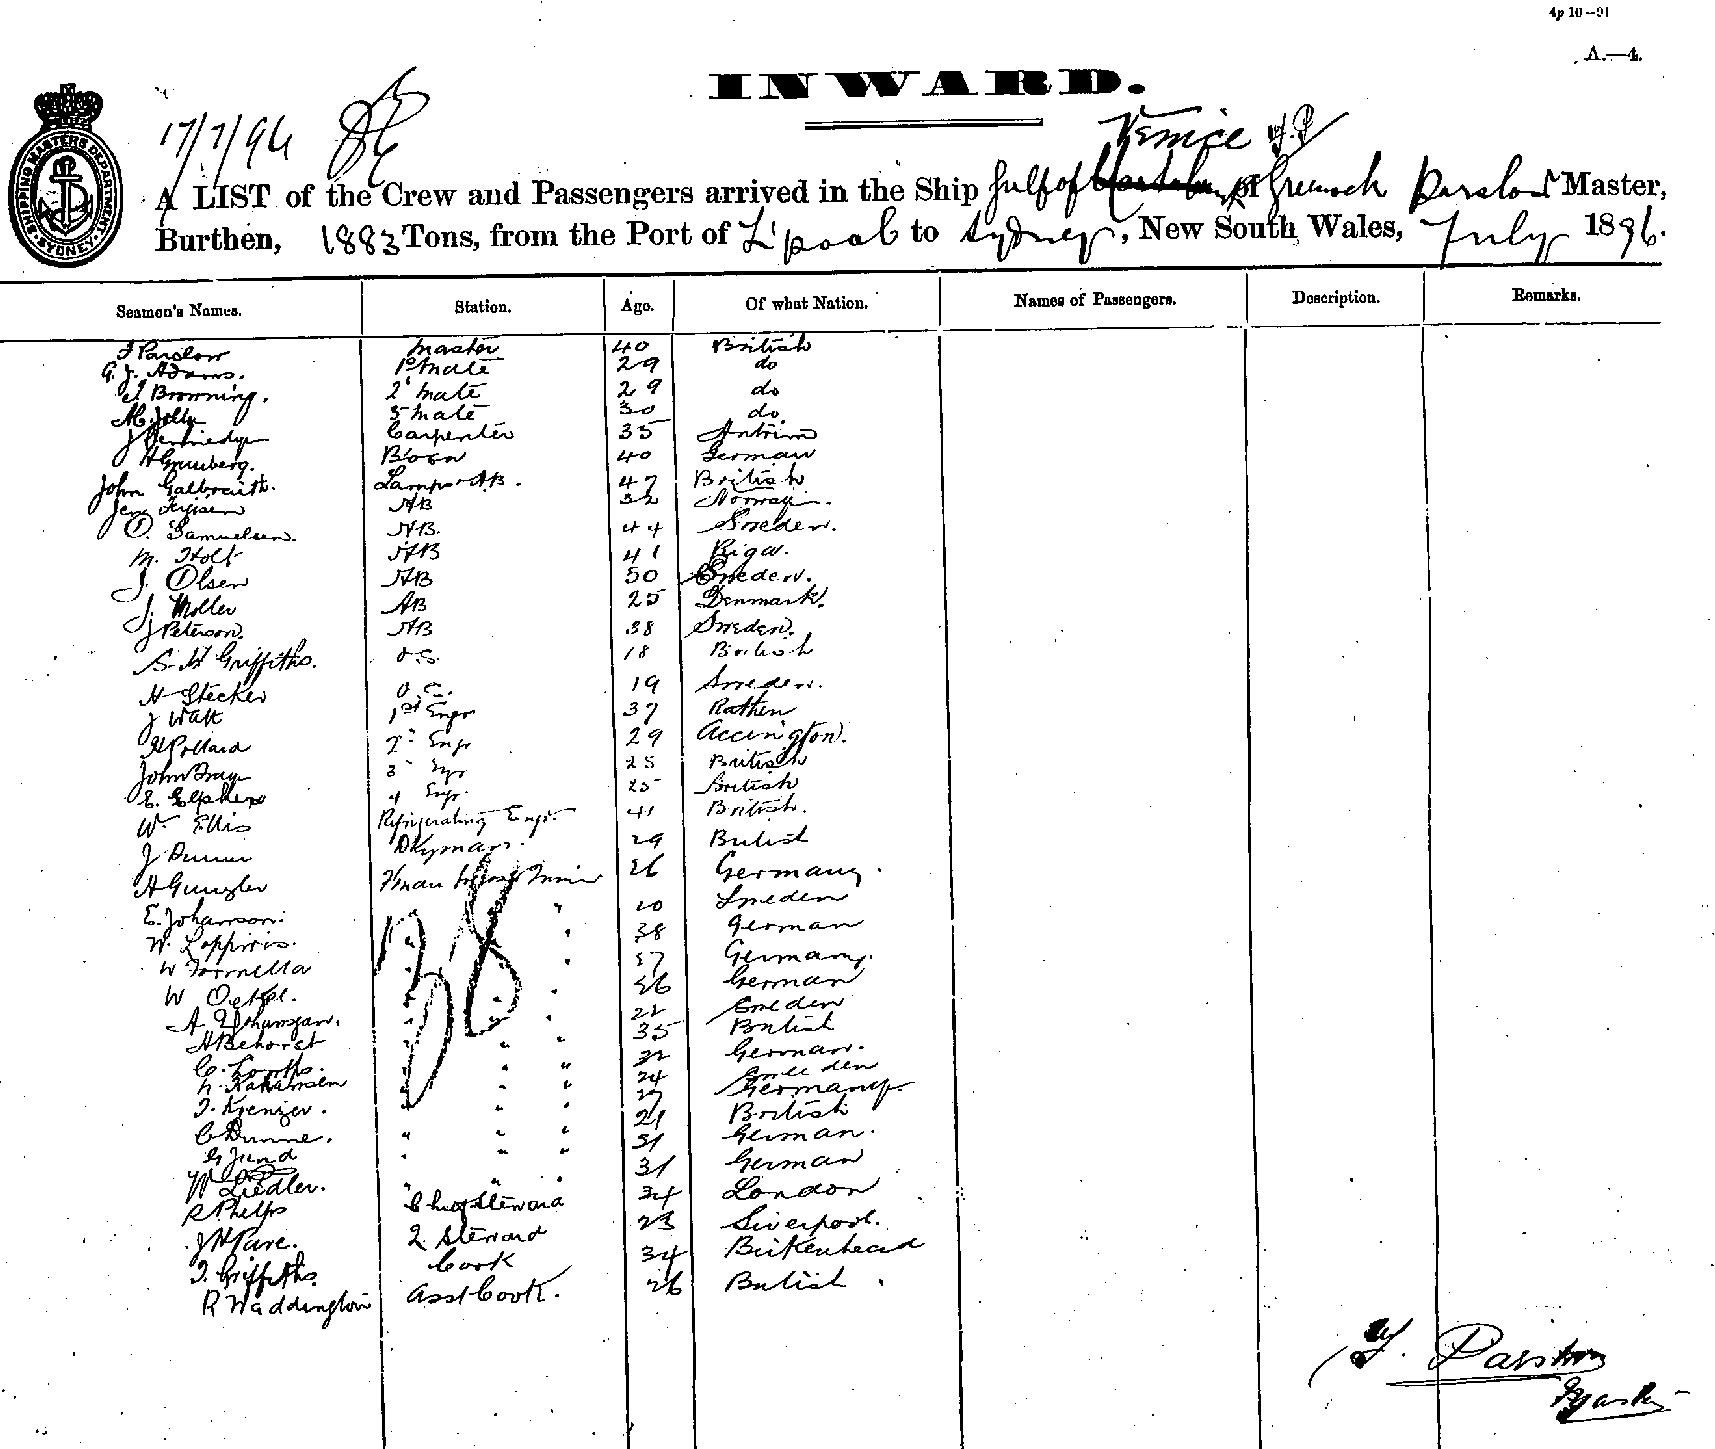 4p 10-91
A.—4.
INWARD.
17/7/96
Venice
SHIPPING MASTERS DEPARTMENT SYDNEY
A LIST of the Crew and Passengers arrived in the Ship Gulf of of Greenock Parslow Master,
Burthen, 1883 Tons, from the Port of L'pool to Sydney, New South Wales, July 1896.
Seamen's Names. Station. Age. Of what Nation. Names of Passengers. Description. Remarks.
F Parslow Master 40 British
G. J. Adams. 1st Mate 29 do
Browning. 2d Mate 29 do
M. Jelly 3 Mate 30 do
J Kennedy Carpenter 35 Antrim
H Gruuberg. Bosn 40 German
John Galbraith. Lamps AB. 47 British
AB 32 Norway.
O. Samuelsen. AB. 44 Sweden.
M. Holt AB 41 Riga.
J. Olsen AB 50 Sweden.
J. Moller AB 25 Denmark.
J Peterson. AB 38 Sweden.
S. H Griffiths. O.S. 18 British
H Stecker O.S. 19 Sweden.
J Watt 1st Engr 37 Rathen
H Pollard 2d Engr 29 Accington.
John Gray 3 Engr 25 British
E. 4 Engr. 25 British
W. Ellis Refrigerating Engr. 41 British.
J Dunn Dkyman. 29 British
H Gungler 26 Germany.
E. Johanson. " 20 Sweden
W. " 38 German
W " 37 Germany.
W Oetzel. " 26 German
A. Johanson. " 22 Sweden
H Behorst " " 35 British
C. " " 32 German.
" " 24 Sweden
F. Krenzer. " " 27 Germany
C Dunne. " " " 21 British
G Jund " " " 31 German.
W Liedler. " " " 31 German
R Phelps Chief Steward 34 London
J H Pare. 2 Steward 23 Liverpool.
T. Griffiths. Cook 34 Birkenhead
R Waddington Asst Cook. 26 British
38
F. Parslow
Master